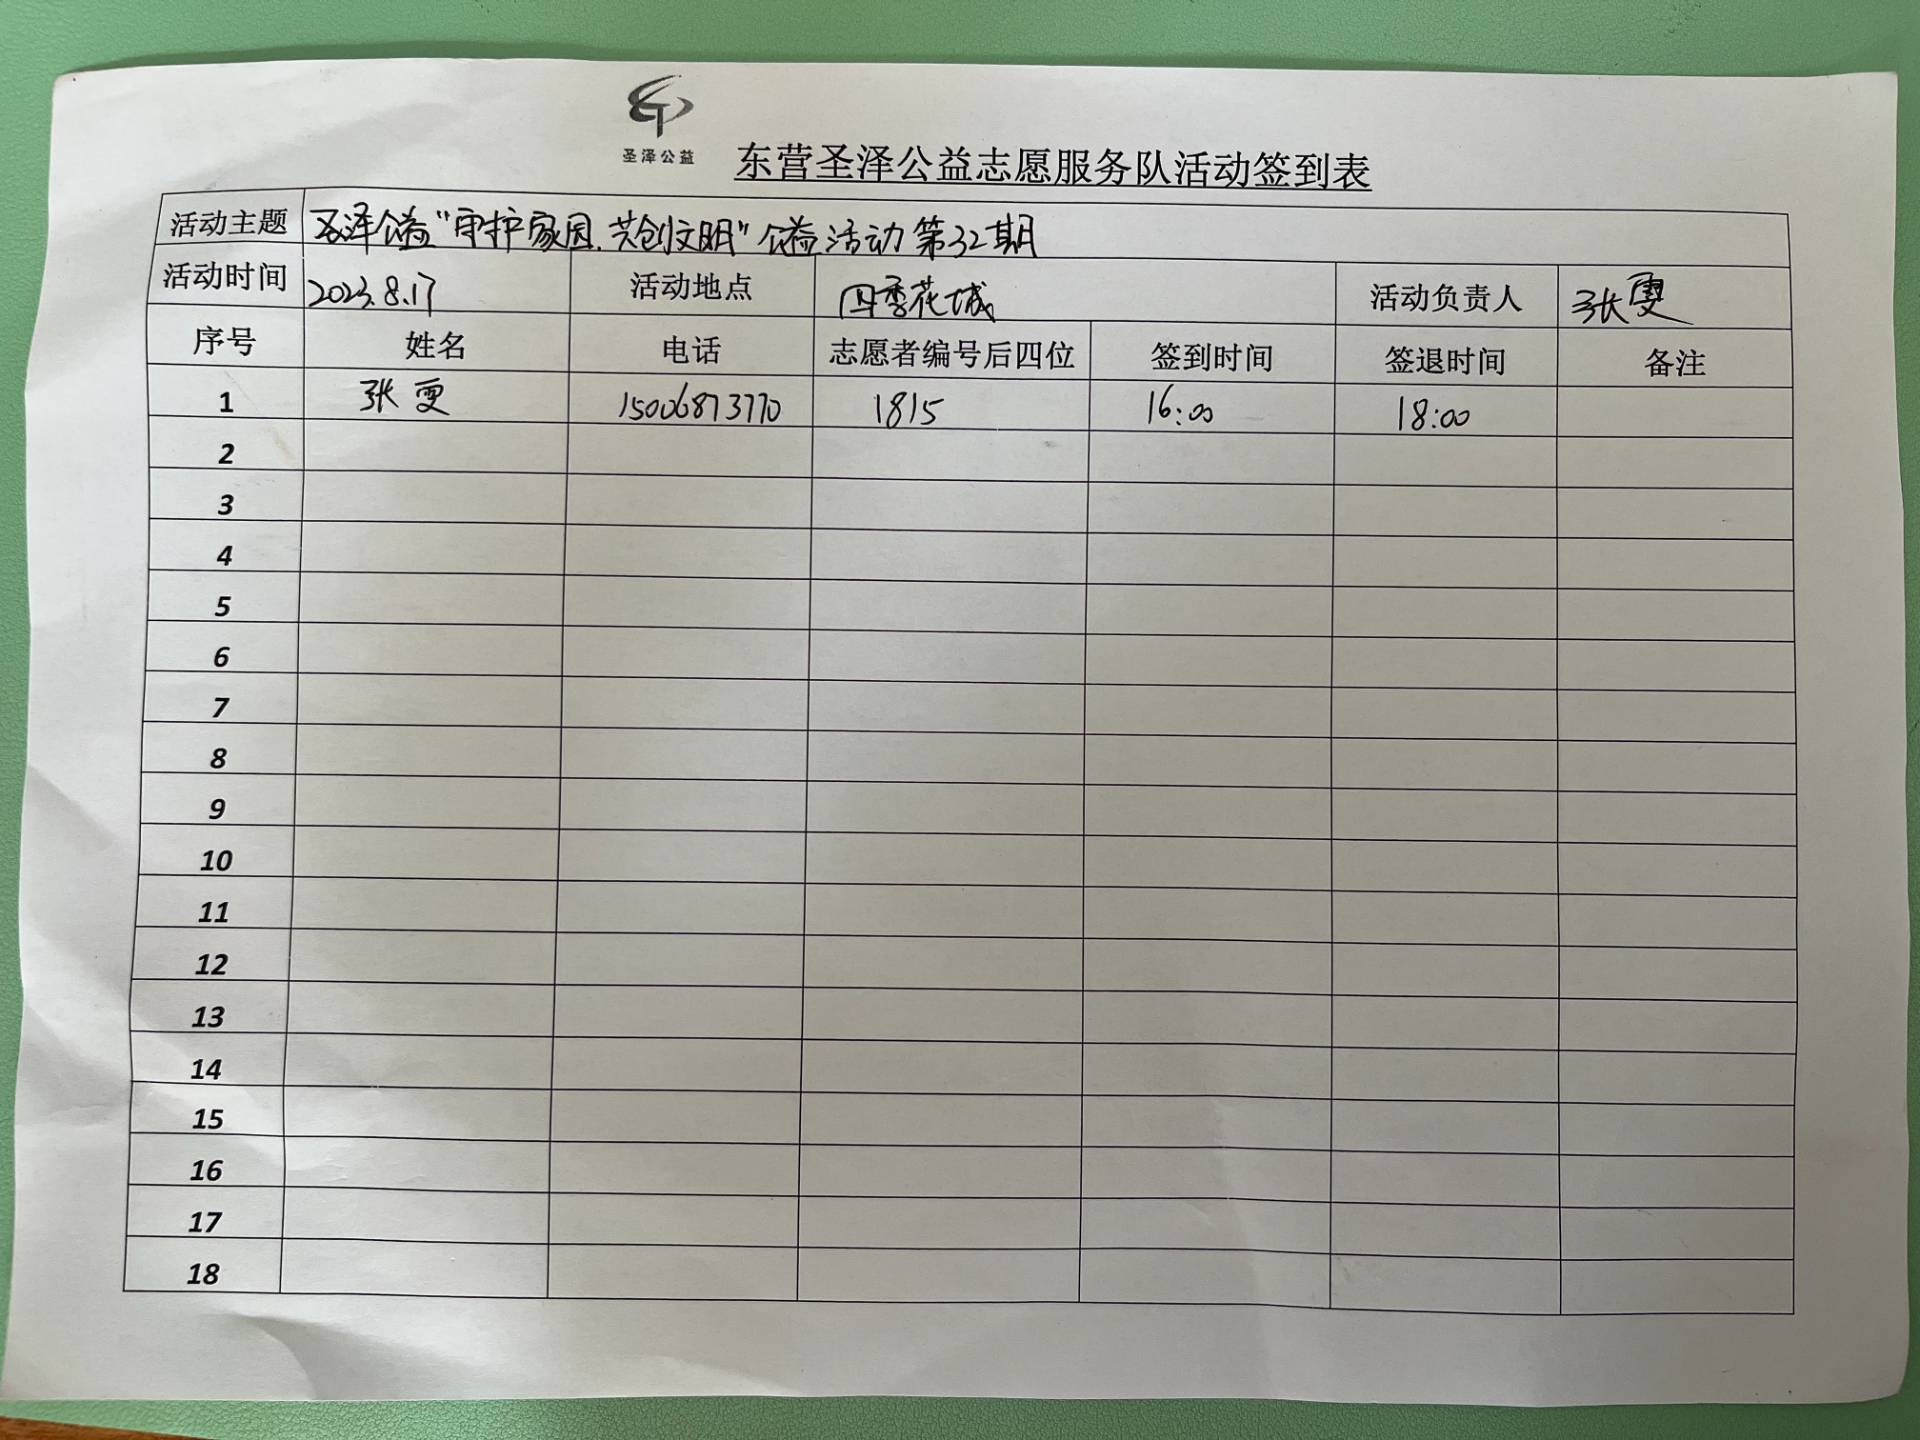 圣泽公益
东营圣泽公益志愿服务队活动签到表
活动主题 圣泽公益“守护家园.共创文明”公益活动第32期
活动时间 2023.8.17 活动地点 四季花城 活动负责人 张雯
序号 姓名 电话 志愿者编号后四位 签到时间 签退时间 备注
1 张雯 15006873770 1815 16:00 18:00
2
3
4
5
6
7
8
9
10
11
12
13
14
15
16
17
18